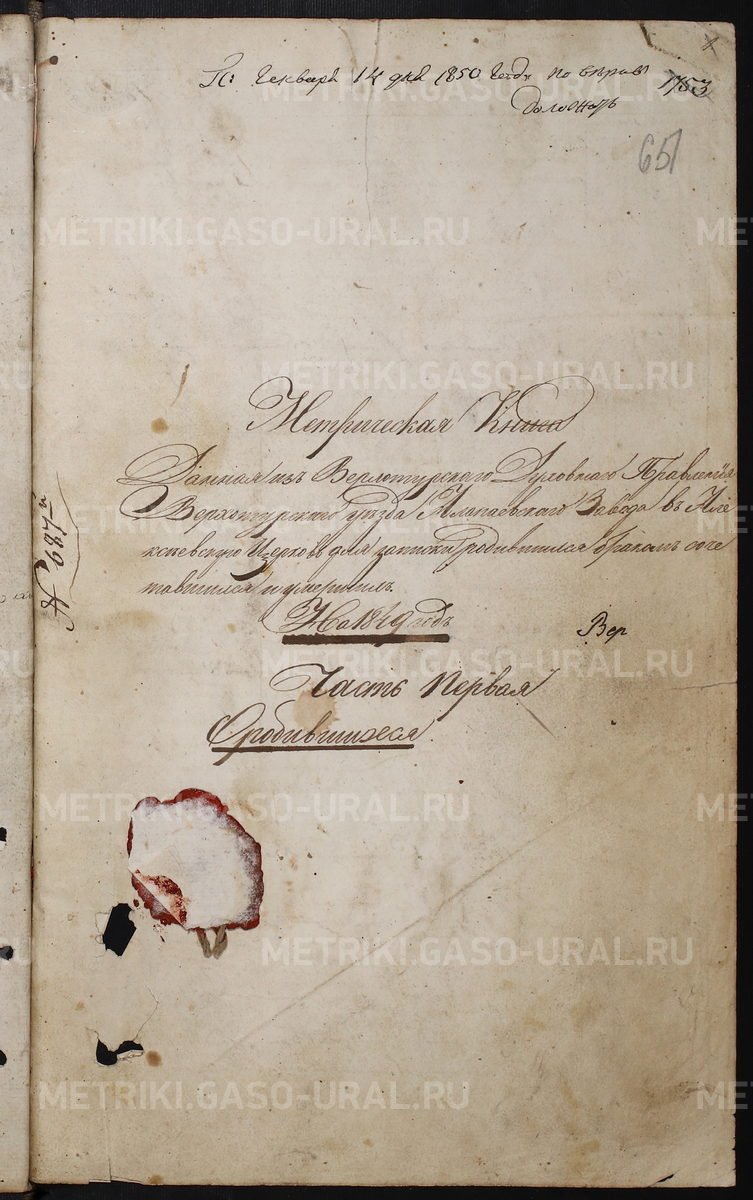 Генваря 14 дня 1850 года по
753
651
Метрическая Книга
Данная изъ Верхотурскаго Духовнаго Правленія
Верхотурскаго уѣзда Алапаевскаго Завода въ Але
ксѣевскую Церковь для записки родившихся бракомъ соче
тавшихся и умершихъ
На 1849 годъ
Вер
Часть Первая
О родившихся
№ 687й
METRIKI.GASO-URAL.RU